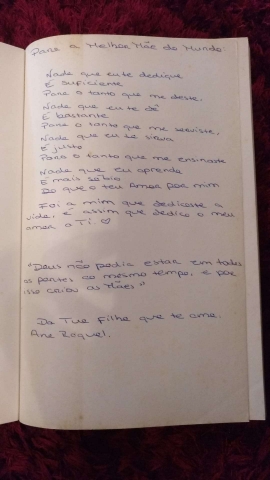 Para a Melhor Mãe do Mundo
Nada que eu te dedique
É suficiente
Para o tanto que me deste.
Nada que eu te dê
É bastante
Para o tanto que me serviste,
Nada que eu te sirva
É justo
Para o tanto que me ensinaste
Nada que eu aprenda
É mais sábio
Do que o teu Amor por mim
Foi a mim que dedicaste a
vida, é assim que dedico o meu
amor a Ti. ♡
"Deus não podia estar em todas
as partes ao mesmo tempo, e por
isso criou as Mães"
Da Tua Filha que te ama.
Ana Raquel.